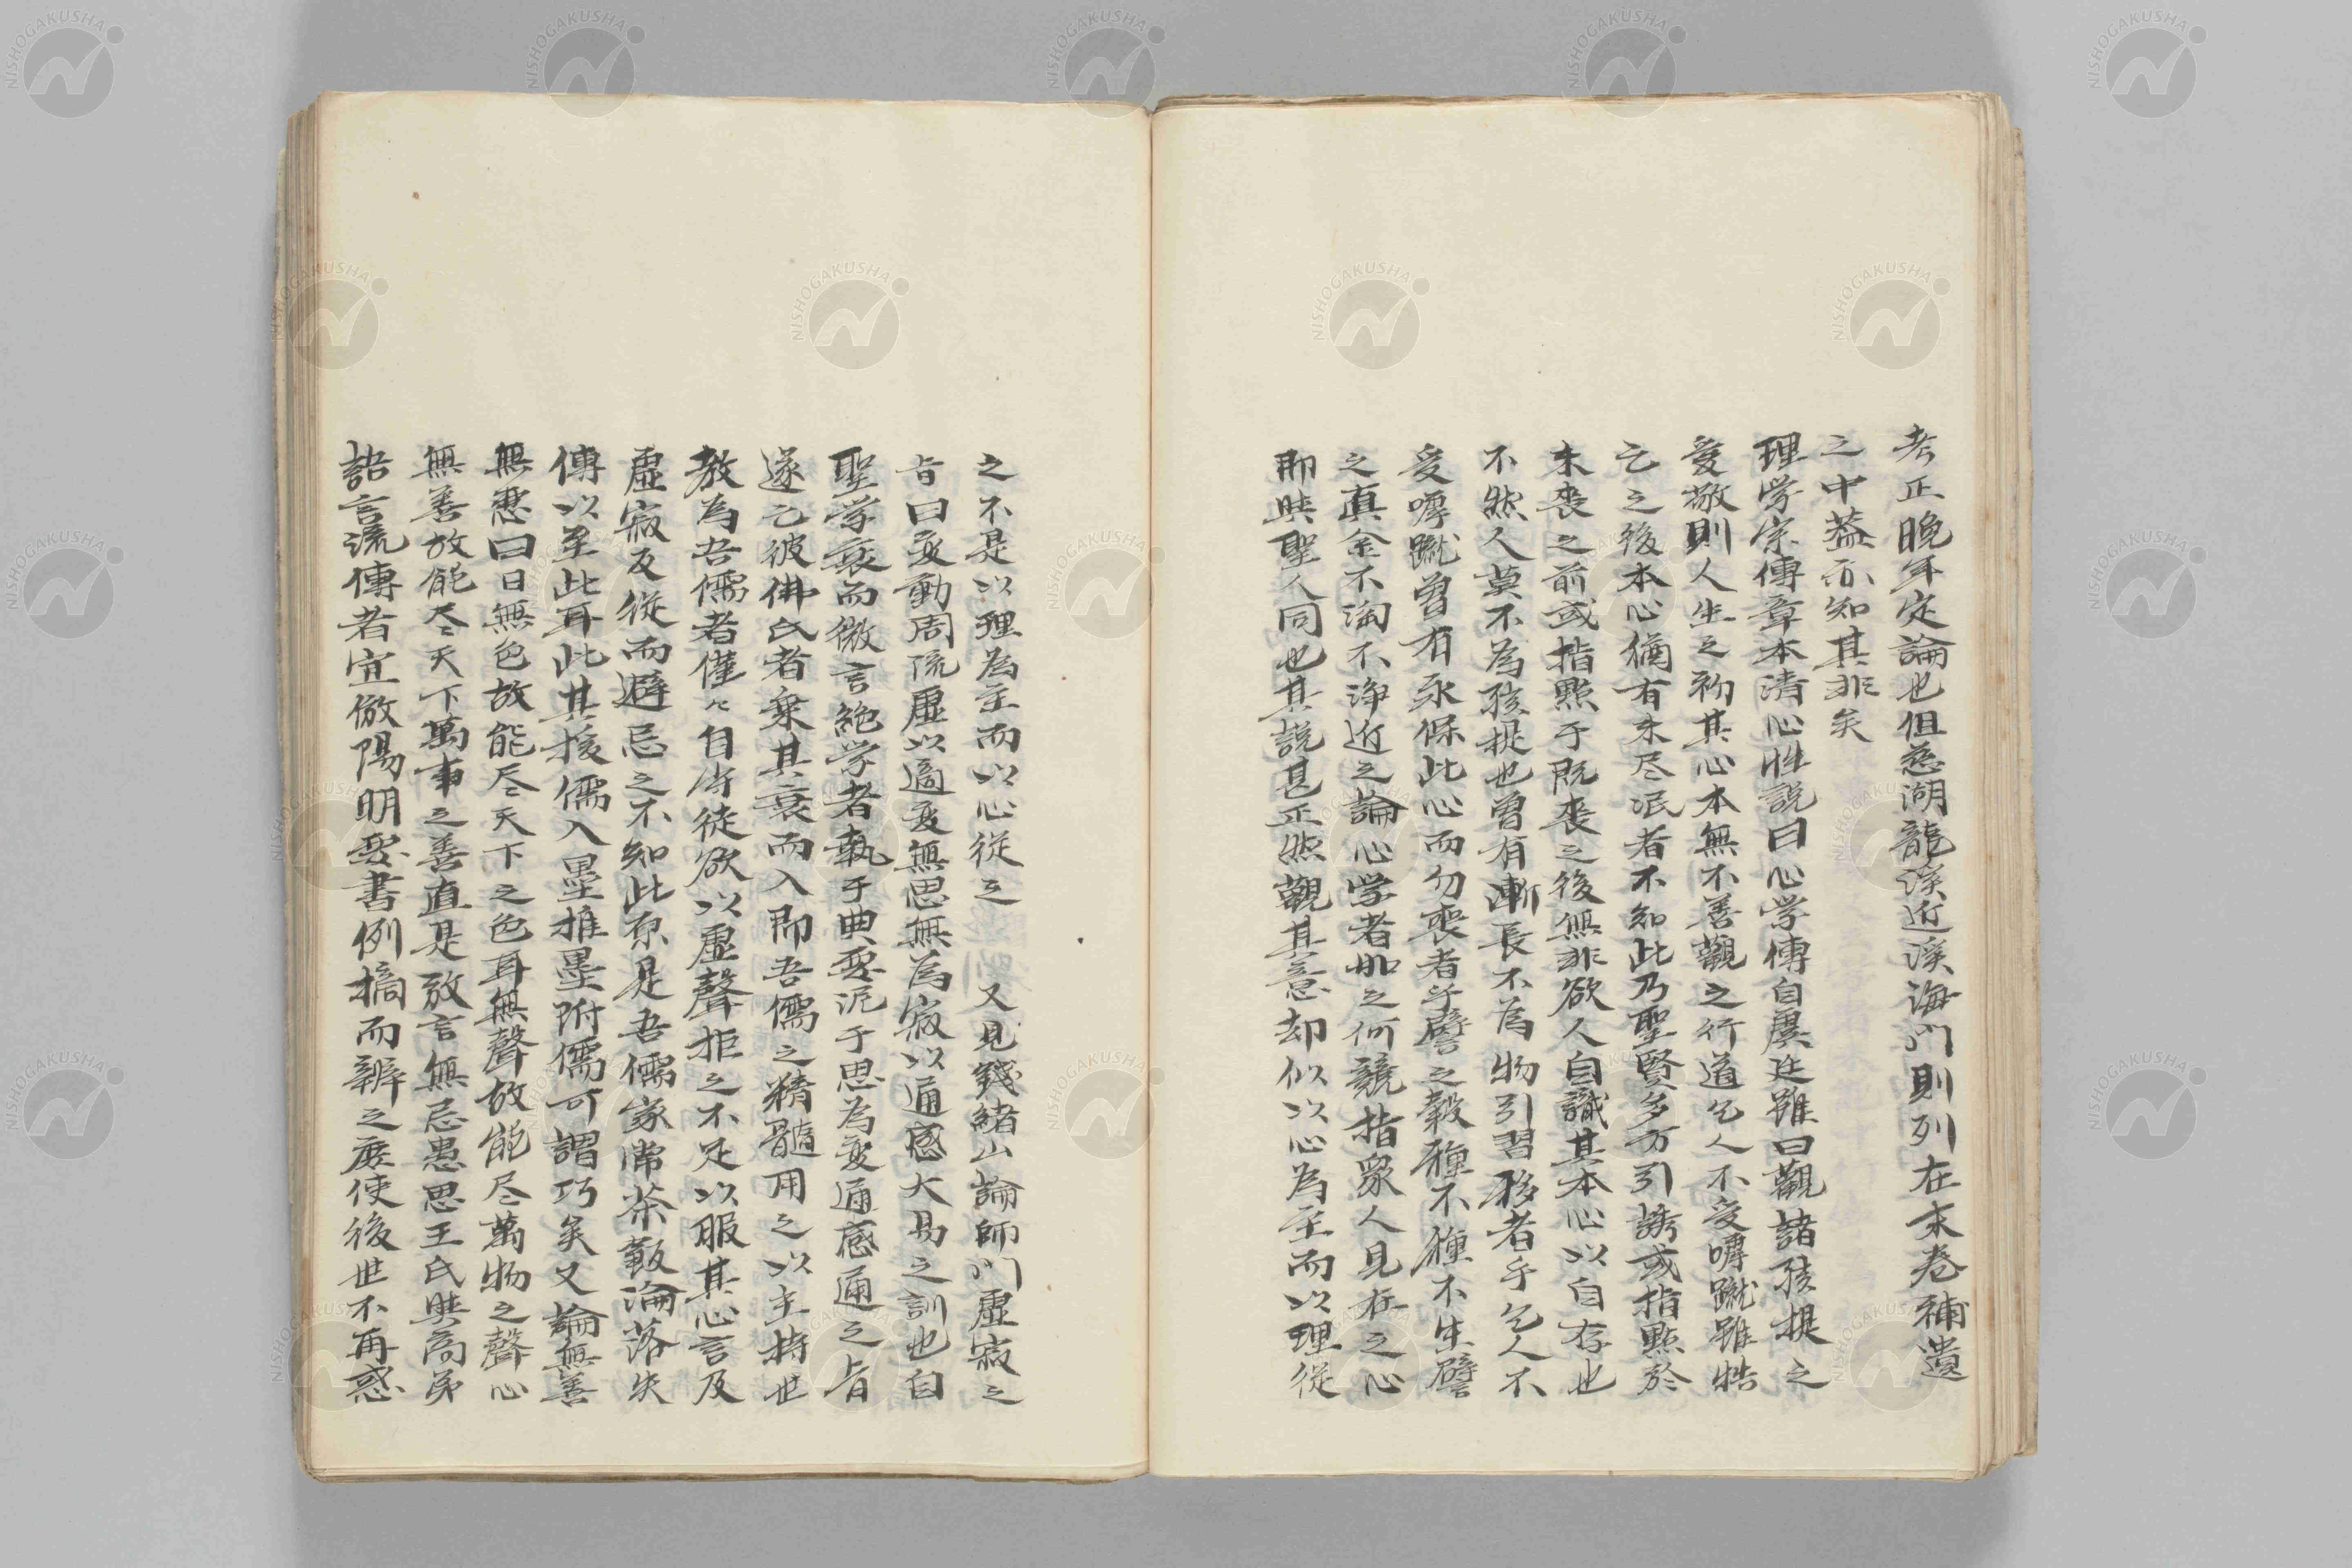 考正晚年定論也但慈湖龍溪近溪海門則列在末卷補遺
之中蓋亦知其非矣
理学宗傳章本清心性説曰心学傳自虞廷雖曰觀諸孩提之
愛敬則人生之初其心本無不善觀之行道乞人不受嘑蹴雖牿
亡之後本心猶有未尽泯者不知此乃聖賢多方引誘或指點於
未喪之前或指點于既喪之後無非欲人自識其本心以自存也
不然人莫不為孩提也曾有漸長不為物引習移者乎乞人不
受嘑蹴曽有永保此心而勿喪者乎譬之穀種不種不生譬
之真金不淘不浄近之論心学者如之何競指衆人見在之心
即與聖人同也其説甚正然觀其意却似以心為至而以理從
之不是以理為至而以心從之 又見錢緒山論師門虛寂之
旨曰変動周流虛以適変無思無為寂以通感大易之訓也自
聖学衰而微言絶学者執于典要泥于思為変通感通之旨
遂亡彼佛氏者乗其衰而入即吾儒之精髓用之以主持世
教為吾儒者僅々自守徒欲以虛聲拒之不足以服其心言及
虛寂反從而避忌之不知此原是吾儒家常茶飯淪落失
傳以至此耳此其援儒入墨推墨附儒可謂巧矣又論無善
無悪曰目無色故能尽天下之色耳無聲故能尽萬物之聲心
無善故能尽天下萬事之善直是放言無忌愚思王氏與高弟
語言流傳者宜倣陽明要書例摘而辨之庶使後世不再惑